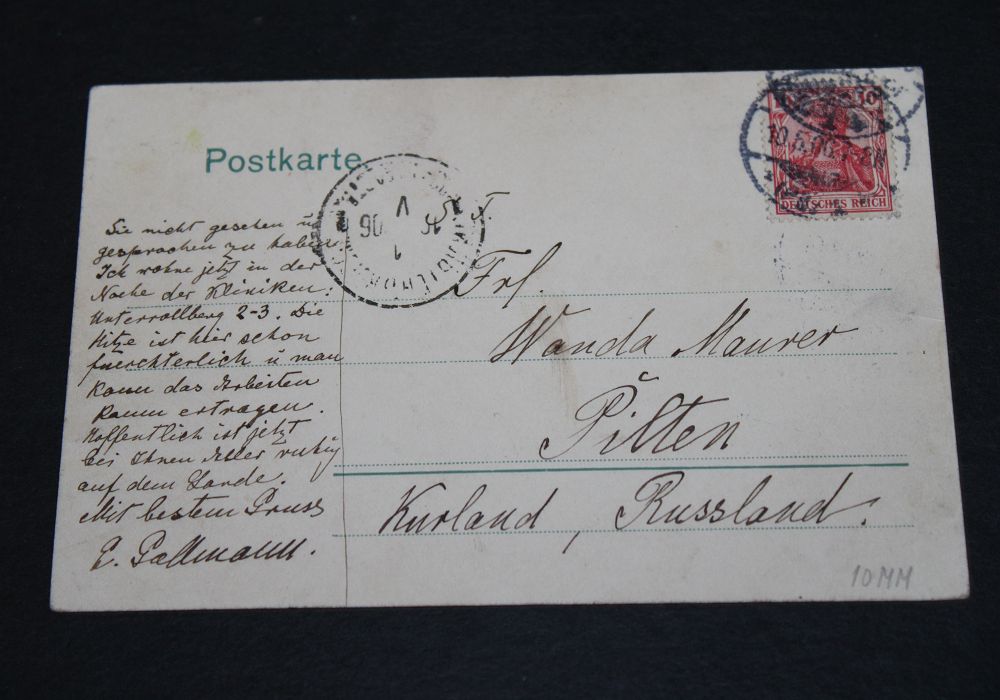 Postkarte
Sie nicht gesehen u
gesprochen zu haben.
Ich wohne jetzt in der
Nähe der Kliniken:
Unterrollberg 2-3. Die
Hitze ist hier schon
fürchterlich u man
kann das Arbeiten
kaum ertragen.
Hoffentlich ist jetzt
bei Ihnen Alles ruhig
auf dem Lande.
Mit bestem Gruss
E.
10
DEUTSCHES REICH
10.5.06
Frl.
Wanda Maurer
Pilten
Kurland, Russland.
10MM